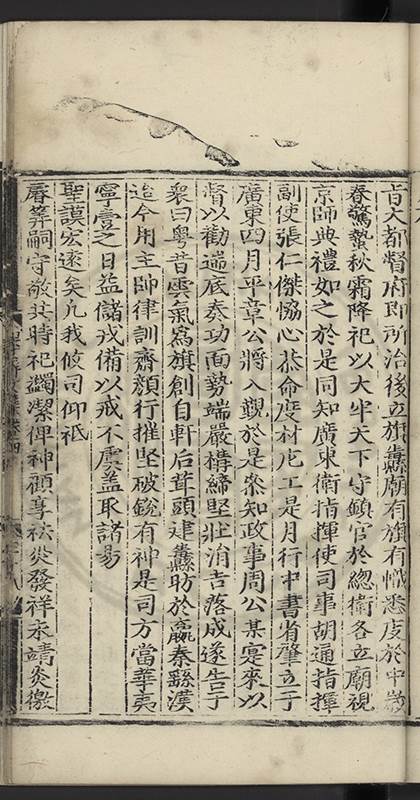 旨大都督府即所治後立旗纛廟有旗有幟悉庋於中歲
春驚蟄秋霜降祀以大牢天下守鎮官於緫衛各立廟視
京師典禮如之於是同知廣東衛指揮使司事胡通指揮
副使張仁傑恊心恭命庀材尼工是月行中書省肇立于
廣東四月平章公將入觀於是叅知政事周公某寔來以
督以勸遄底泰功面勢端嚴構締堅壯涓吉落成遂告于
衆曰粤昔雲氣爲旗創自軒后髦頭建纛昉於嬴秦繇漢
迄今用主師律訓齋顏行摧堅破銳有神是司方當華夷
寧壹之日益儲戎備以戒不虞蓋取諸易
聖謨宏遠矣凡我攸司仰祗
厪筭嗣守敬共時祀蠲潔俾神顧享祛災發祥永靖炎徼